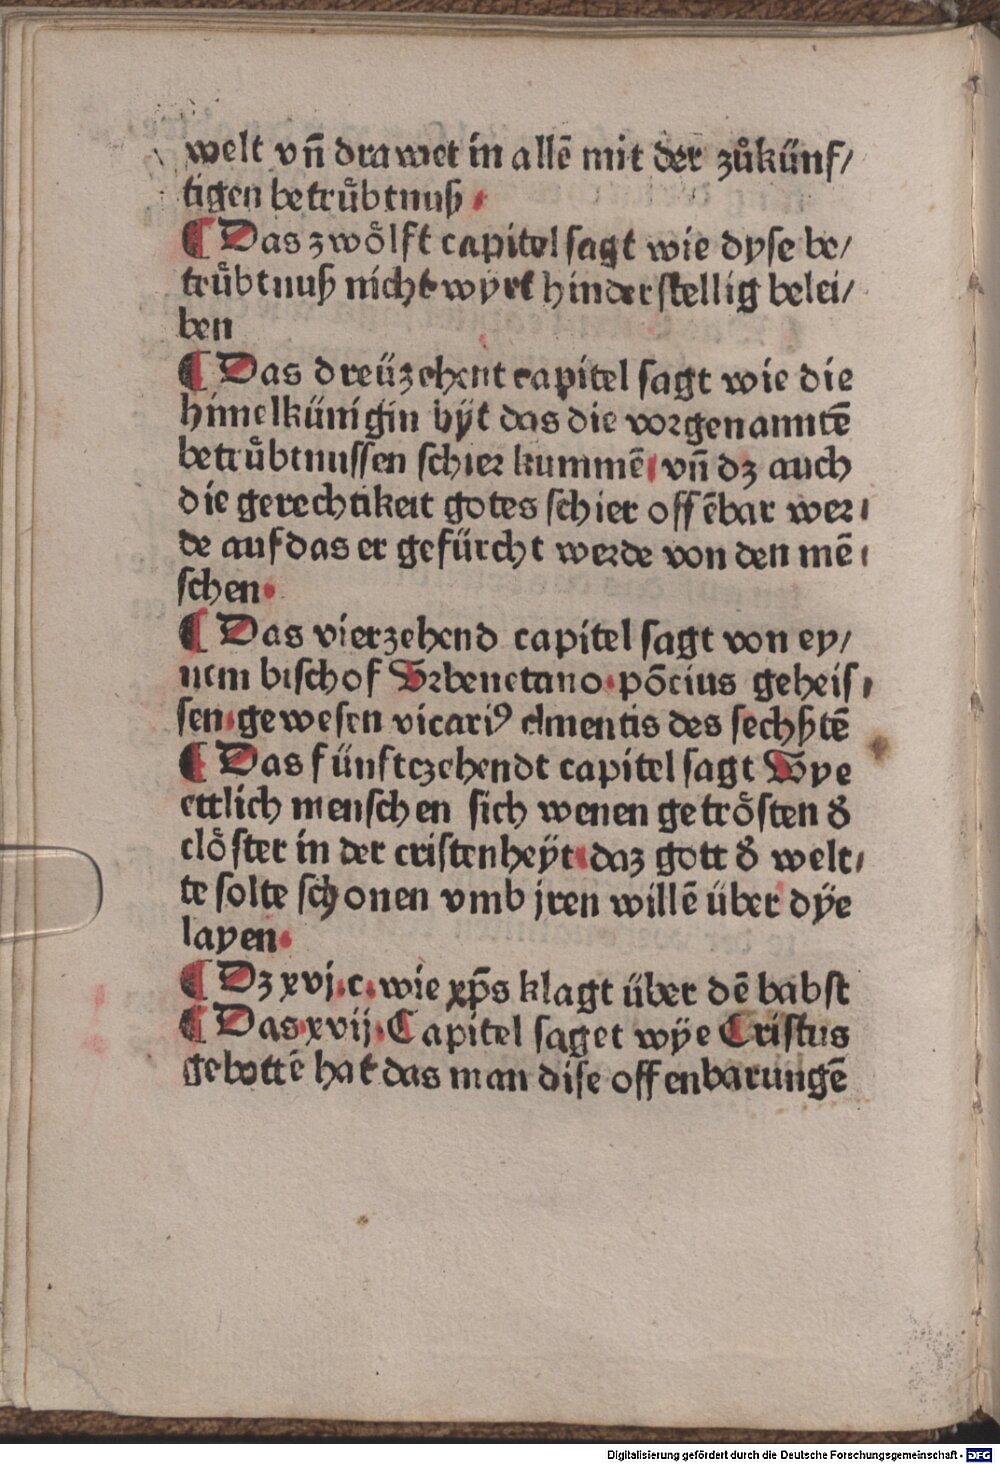 welt vn̄ drawet in allē mit der zůkünf/
tigen betrůbtnuß .
¶ Das zwoͤlft capitel sagt wie dyse be/
truͤbtnuß nicht wyrt hinderstellig belei/
ben
¶ Das dreüzehent capitel sagt wie die
himelkünigin byt das die vorgenanntē
betruͤbtnussen schier kummē vn̄ dz auch
die gerechtikeit gotes schier offēbar wer⸗
de auf das er gefürcht werde von den mē⸗
schen.
¶ Das vierzehend capitel sagt von ey/
nem bischof Vrbenetano. pōcius geheis⸗
sen. gewesen vicariꝰ clmentis des sechßtē
¶ Das fünftczehendt capitel sagt Wye
ettlich menschen sich wenen getroͤsten đ
cloͤster in der cristenheÿt. daz gott đ welt⸗
te solte schonen vmb jren willē über dÿe
layen.
¶ Dz xvj. c. wie xp̄s klagt über dē babst
¶ Das. xvij. Capitel saget wÿe Cristus
gebottē hat das man dise offenbarungē
Digitalisierung gefördert durch die Deutsche Forschungsgemeinschaft - DFG